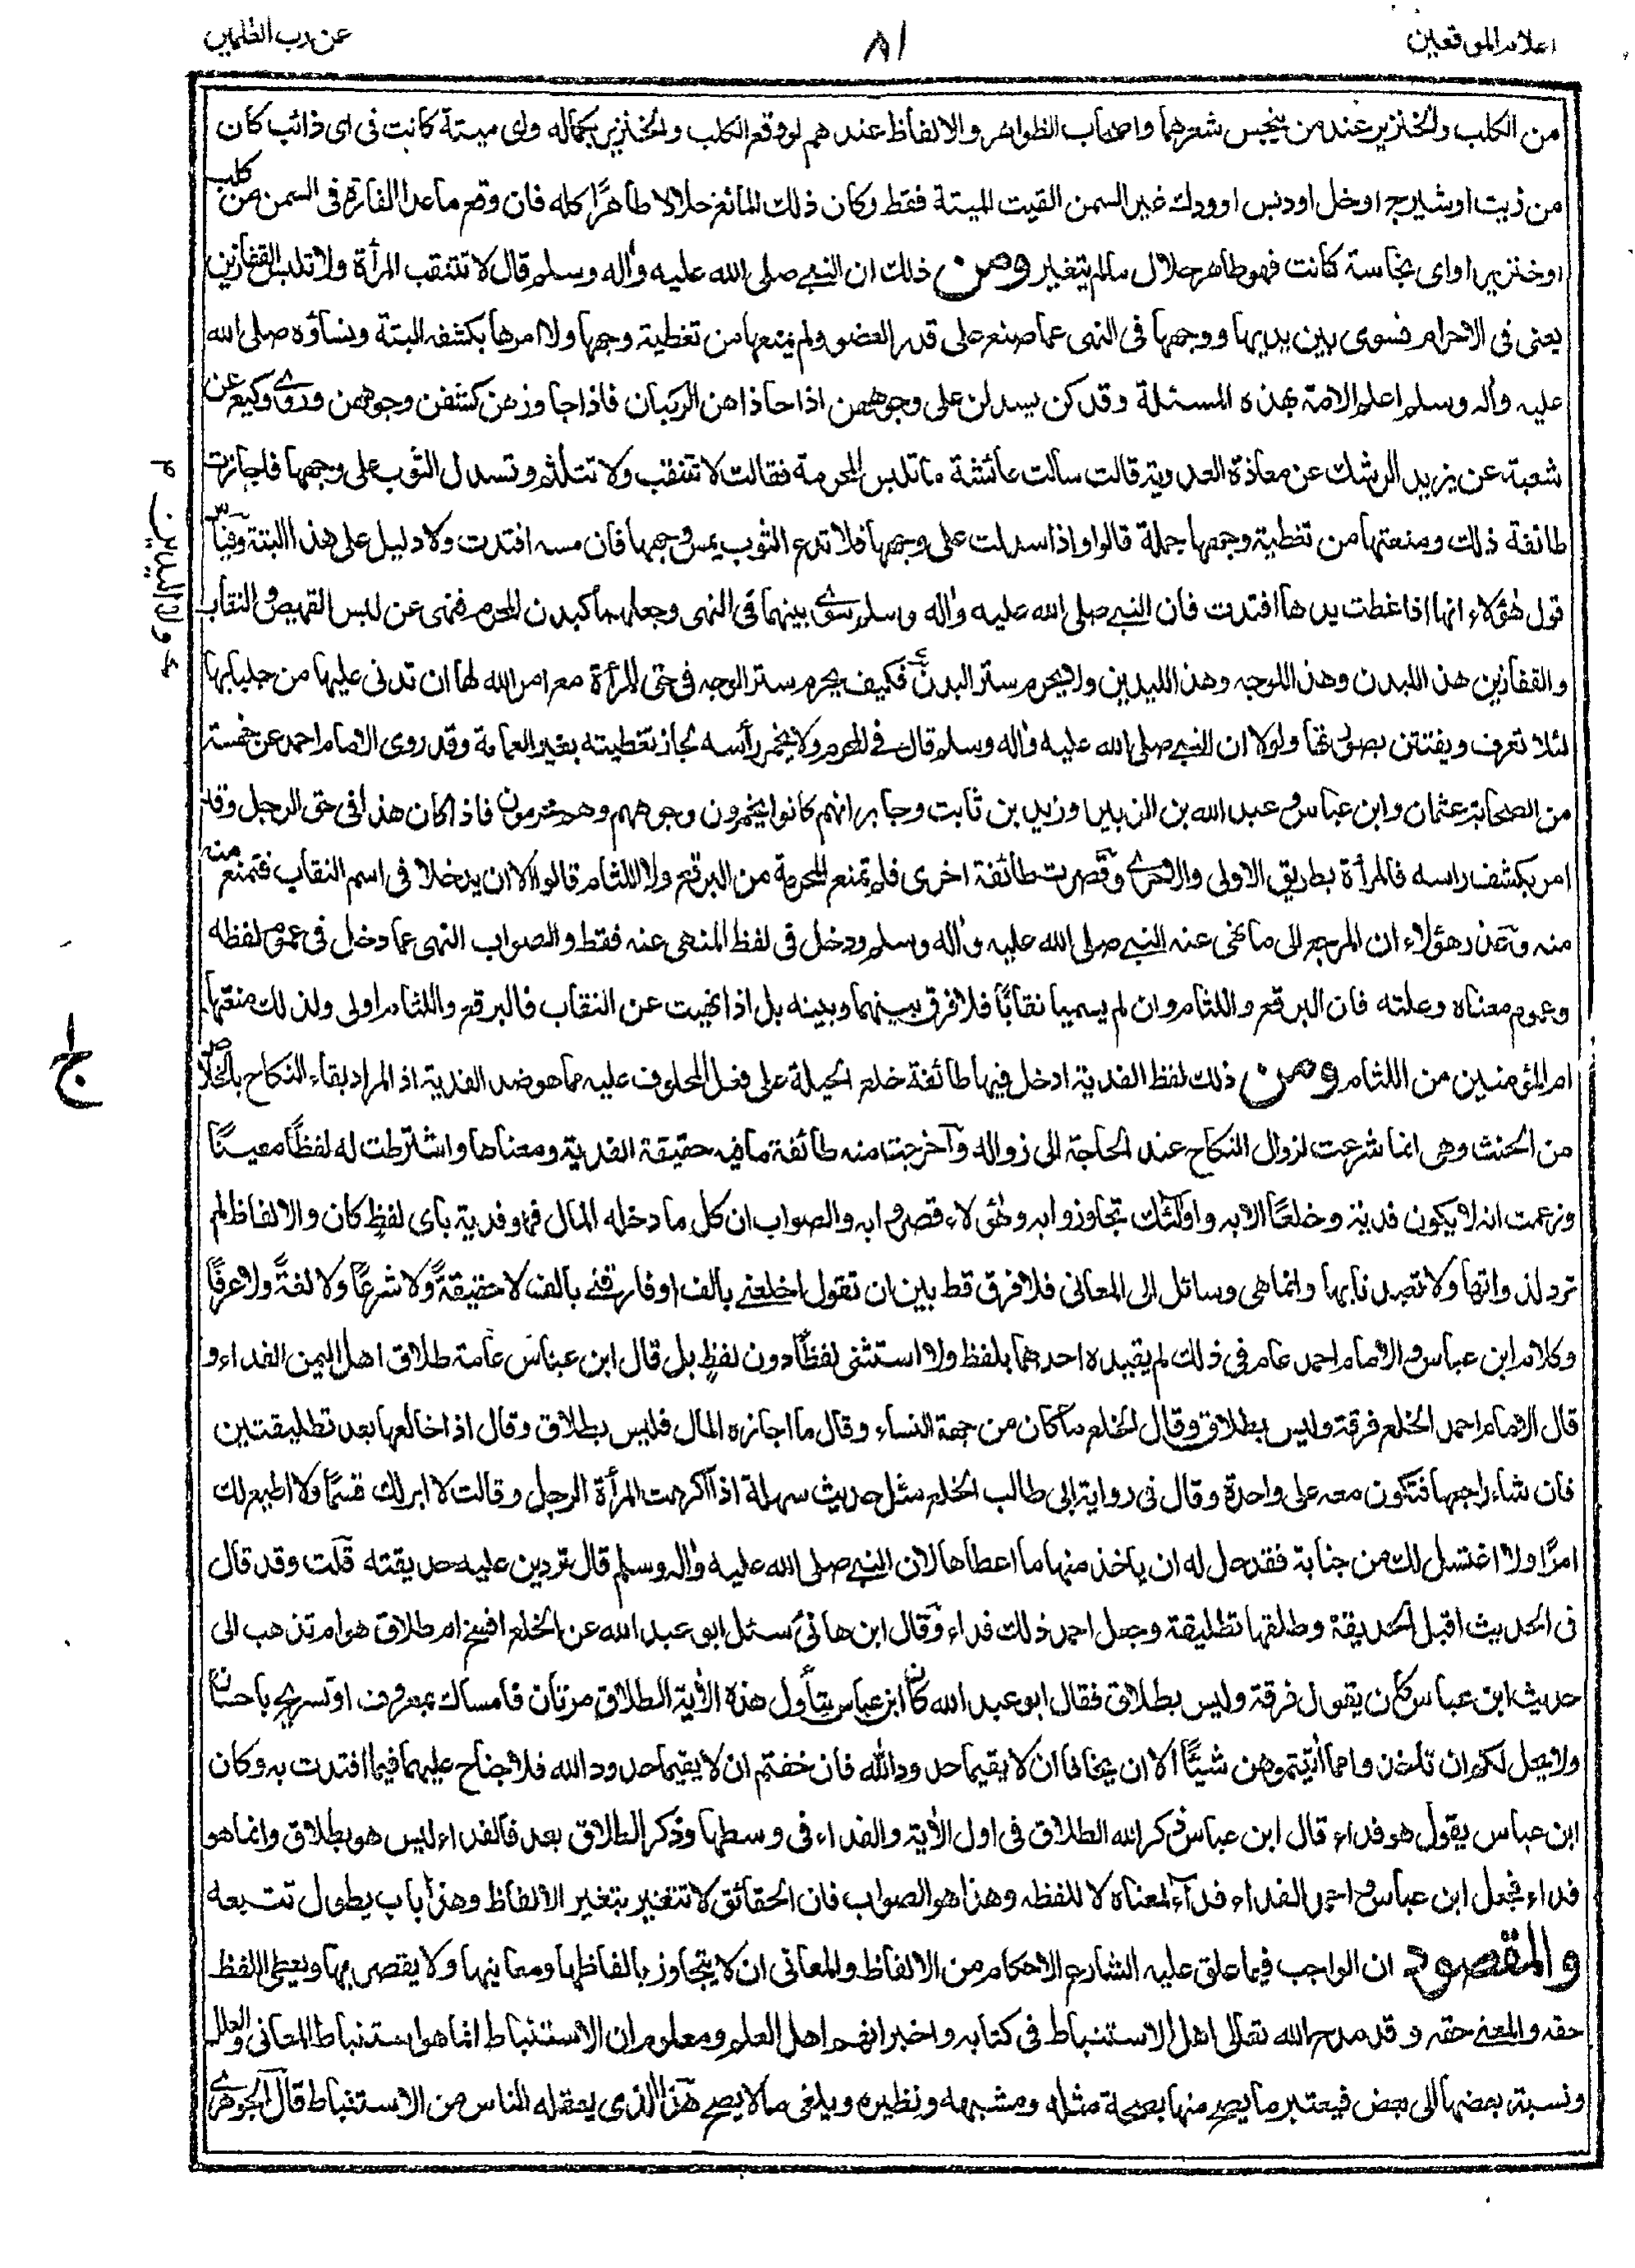 اعلام الموقعين
٨١
عن رب العلمين
من الكلب والخنزير عند من ينجس شعرهما واصحاب الظواهر والالفاظ عندهم لو وقع الكلب والخنزير بكماله واى ميتة كانت فى اى ذائب كان
من زيت او شيرج او خل او دبس او ودك غير السمن القيت الميتة فقط وكان ذلك المائع حلالا طاهرًا كله فان وقع ما عدا الفارة فى السمن من كلب
او خنزير او اى نجاسة كانت فهو طاهر حلال مالم يتغير ومن ذلك ان النبى صلى الله عليه واله وسلم قال لا تنتقب المرأة ولا تلبس القفازين
يعنى فى الاحرام فسوى بين يديها ووجهها فى النهى عما صنع على قدر العضو ولم يمنعها من تغطية وجهها ولا امرها بكشفه البتة ونساؤه صلى الله
عليه واله وسلم اعلم الامة بهذه المسئلة وقد كن يسدلن على وجوههن اذا حاذاهن الركبان فاذا جاوزهن كشفن وجوههن وروى وكيع عن
شعبة عن يزيد الرشك عن معاذة العدوية قالت سالت عائشة ما تلبس المحرمة فقالت لا تنتقب ولا تتلثم وتسدل الثوب على وجهها فاجازت
طائفة ذلك ومنعتها من تغطية وجهها جملة قالوا واذا سدلت على وجهها فلا تدع الثوب يمس وجهها فان مسه افتدت ولا دليل على هذا البتة وقياس
قول هؤلاء انها اذا غطت يدها افتدت فان النبى صلى الله عليه واله وسلم سوى بينهما فى النهى وجعلهما كبدن المحرم فنهى عن لبس القميص والنقاب
والقفازين هذا للبدن وهذا للوجه وهذا لليدين ولا يحرم ستر البدن فكيف يحرم ستر الوجه فى حق المرأة مع امر الله لها ان تدنى عليها من جلبابها
ولا اليدين
لئلا تعرف ويفتتن بصورتها ولولا ان النبى صلى الله عليه واله وسلم قال فى المحرم ولا يخمر رأسه لجاز تغطيته بغير العمامة وقد روى الامام احمد عن خمسة
من الصحابة عثمان وابن عباس وعبد الله بن الزبير وزيد بن ثابت وجابر انهم كانوا يخمرون وجوههم وهم محرمون فاذا كان هذا فى حق الرجل وقد
امر بكشف راسه فالمرأة بطريق الاولى والاحرى وقصرت طائفة اخرى فلم تمنع المحرمة من البرقع ولا اللثام قالوا الا ان يدخلا فى اسم النقاب فتمنع منه
منه وعذر هؤلاء ان المرجع الى ما نهى عنه النبى صلى الله عليه واله وسلم ودخل فى لفظ المنهى عنه فقط والصواب النهى عما دخل فى عموم لفظه
وعموم معناه وعلته فان البرقع واللثام وان لم يسميا نقابًا فلا فرق بينهما وبينه بل اذا نهيت عن النقاب فالبرقع واللثام اولى ولذلك منعتها
ام المؤمنين من اللثام ومن ذلك لفظ الفدية ادخل فيها طائفة خلع الحيلة على فعل المحلوف عليه مما هو ضد الفدية اذ المراد بقاء النكاح بالخلاص
من الحنث وهى انما شرعت لزوال النكاح عند الحاجة الى زواله واخرجت منه طائفة ما فيه حقيقة الفدية ومعناها واشترطت له لفظًا معينًا
وزعمت انه لا يكون فدية وخلعًا الا به واولئك تجاوزوا به وهؤلاء قصروا به والصواب ان كل ما دخله المال فهو فدية باى لفظ كان والالفاظ لم
ترد لذواتها ولا تعبدنا بها وانما هى وسائل الى المعانى فلا فرق قط بين ان تقول اخلعنى بالف او فارقنى بالف لا حقيقةً ولا شرعًا ولا لغةً ولا عرفًا
وكلام ابن عباس والامام احمد عام فى ذلك لم يقيده احدهما بلفظ ولا استثنى لفظًا دون لفظٍ بل قال ابن عباس عامة طلاق اهل اليمن الفداء و
قال الامام احمد الخلع فرقة وليس بطلاق وقال الخلع ما كان من جهة النساء وقال ما اجازه المال فليس بطلاق وقال اذا خالعها بعد تطليقتين
فان شاء راجعها فتكون معه على واحدة وقال فى رواية ابى طالب الخلع مثل حديث سهلة اذا كرهت المرأة الرجل وقالت لا ابر لك قسمًا ولا اطيع لك
امرًا ولا اغتسل لك من جنابة فقد حل له ان ياخذ منها ما اعطاها لان النبى صلى الله عليه واله وسلم قال تردين عليه حديقته قلت وقد قال
فى الحديث اقبل الحديقة وطلقها تطليقة وجعل احمد ذلك فداء وقال ابن هانئ سئل ابو عبد الله عن الخلع افسخ ام طلاق هو ام تذهب الى
حديث ابن عباس كان يقول فرقة وليس بطلاق فقال ابو عبد الله كان ابن عباس يتأول هذه الاية الطلاق مرتان فامساك بمعروف او تسريح باحسان
ولا يحل لكم ان تاخذوا مما اتيتموهن شيئًا الا ان يخافا ان لا يقيما حدود الله فان خفتم ان لا يقيما حدود الله فلا جناح عليهما فيما افتدت به وكان
ابن عباس يقول هو فداء قال ابن عباس ذكر الله الطلاق فى اول الاية والفداء فى وسطها وذكر الطلاق بعد فالفداء ليس هو بطلاق وانما هو
فداء فجعل ابن عباس واحمد الفداء فداءً لمعناه لا للفظه وهذا هو الصواب فان الحقائق لا تتغير بتغير الالفاظ وهذا باب يطول تتبعه
والمقصود ان الواجب فيما علق عليه الشارع الاحكام من الالفاظ والمعانى ان لا يتجاوز بالفاظها ومعانيها ولا يقصر بها ويعطى اللفظ
حقه والمعنى حقه وقد مدح الله تعالى اهل الاستنباط فى كتابه واخبر انهم اهل العلم ومعلوم ان الاستنباط انما هو استنباط المعانى والعلل
ونسبة بعضها الى بعض فيعتبر ما يصح منها بصحة مثله ومشبهه ونظيره ويلغى ما لا يصح هذا الذى يعقله الناس من الاستنباط قال الجوهرى